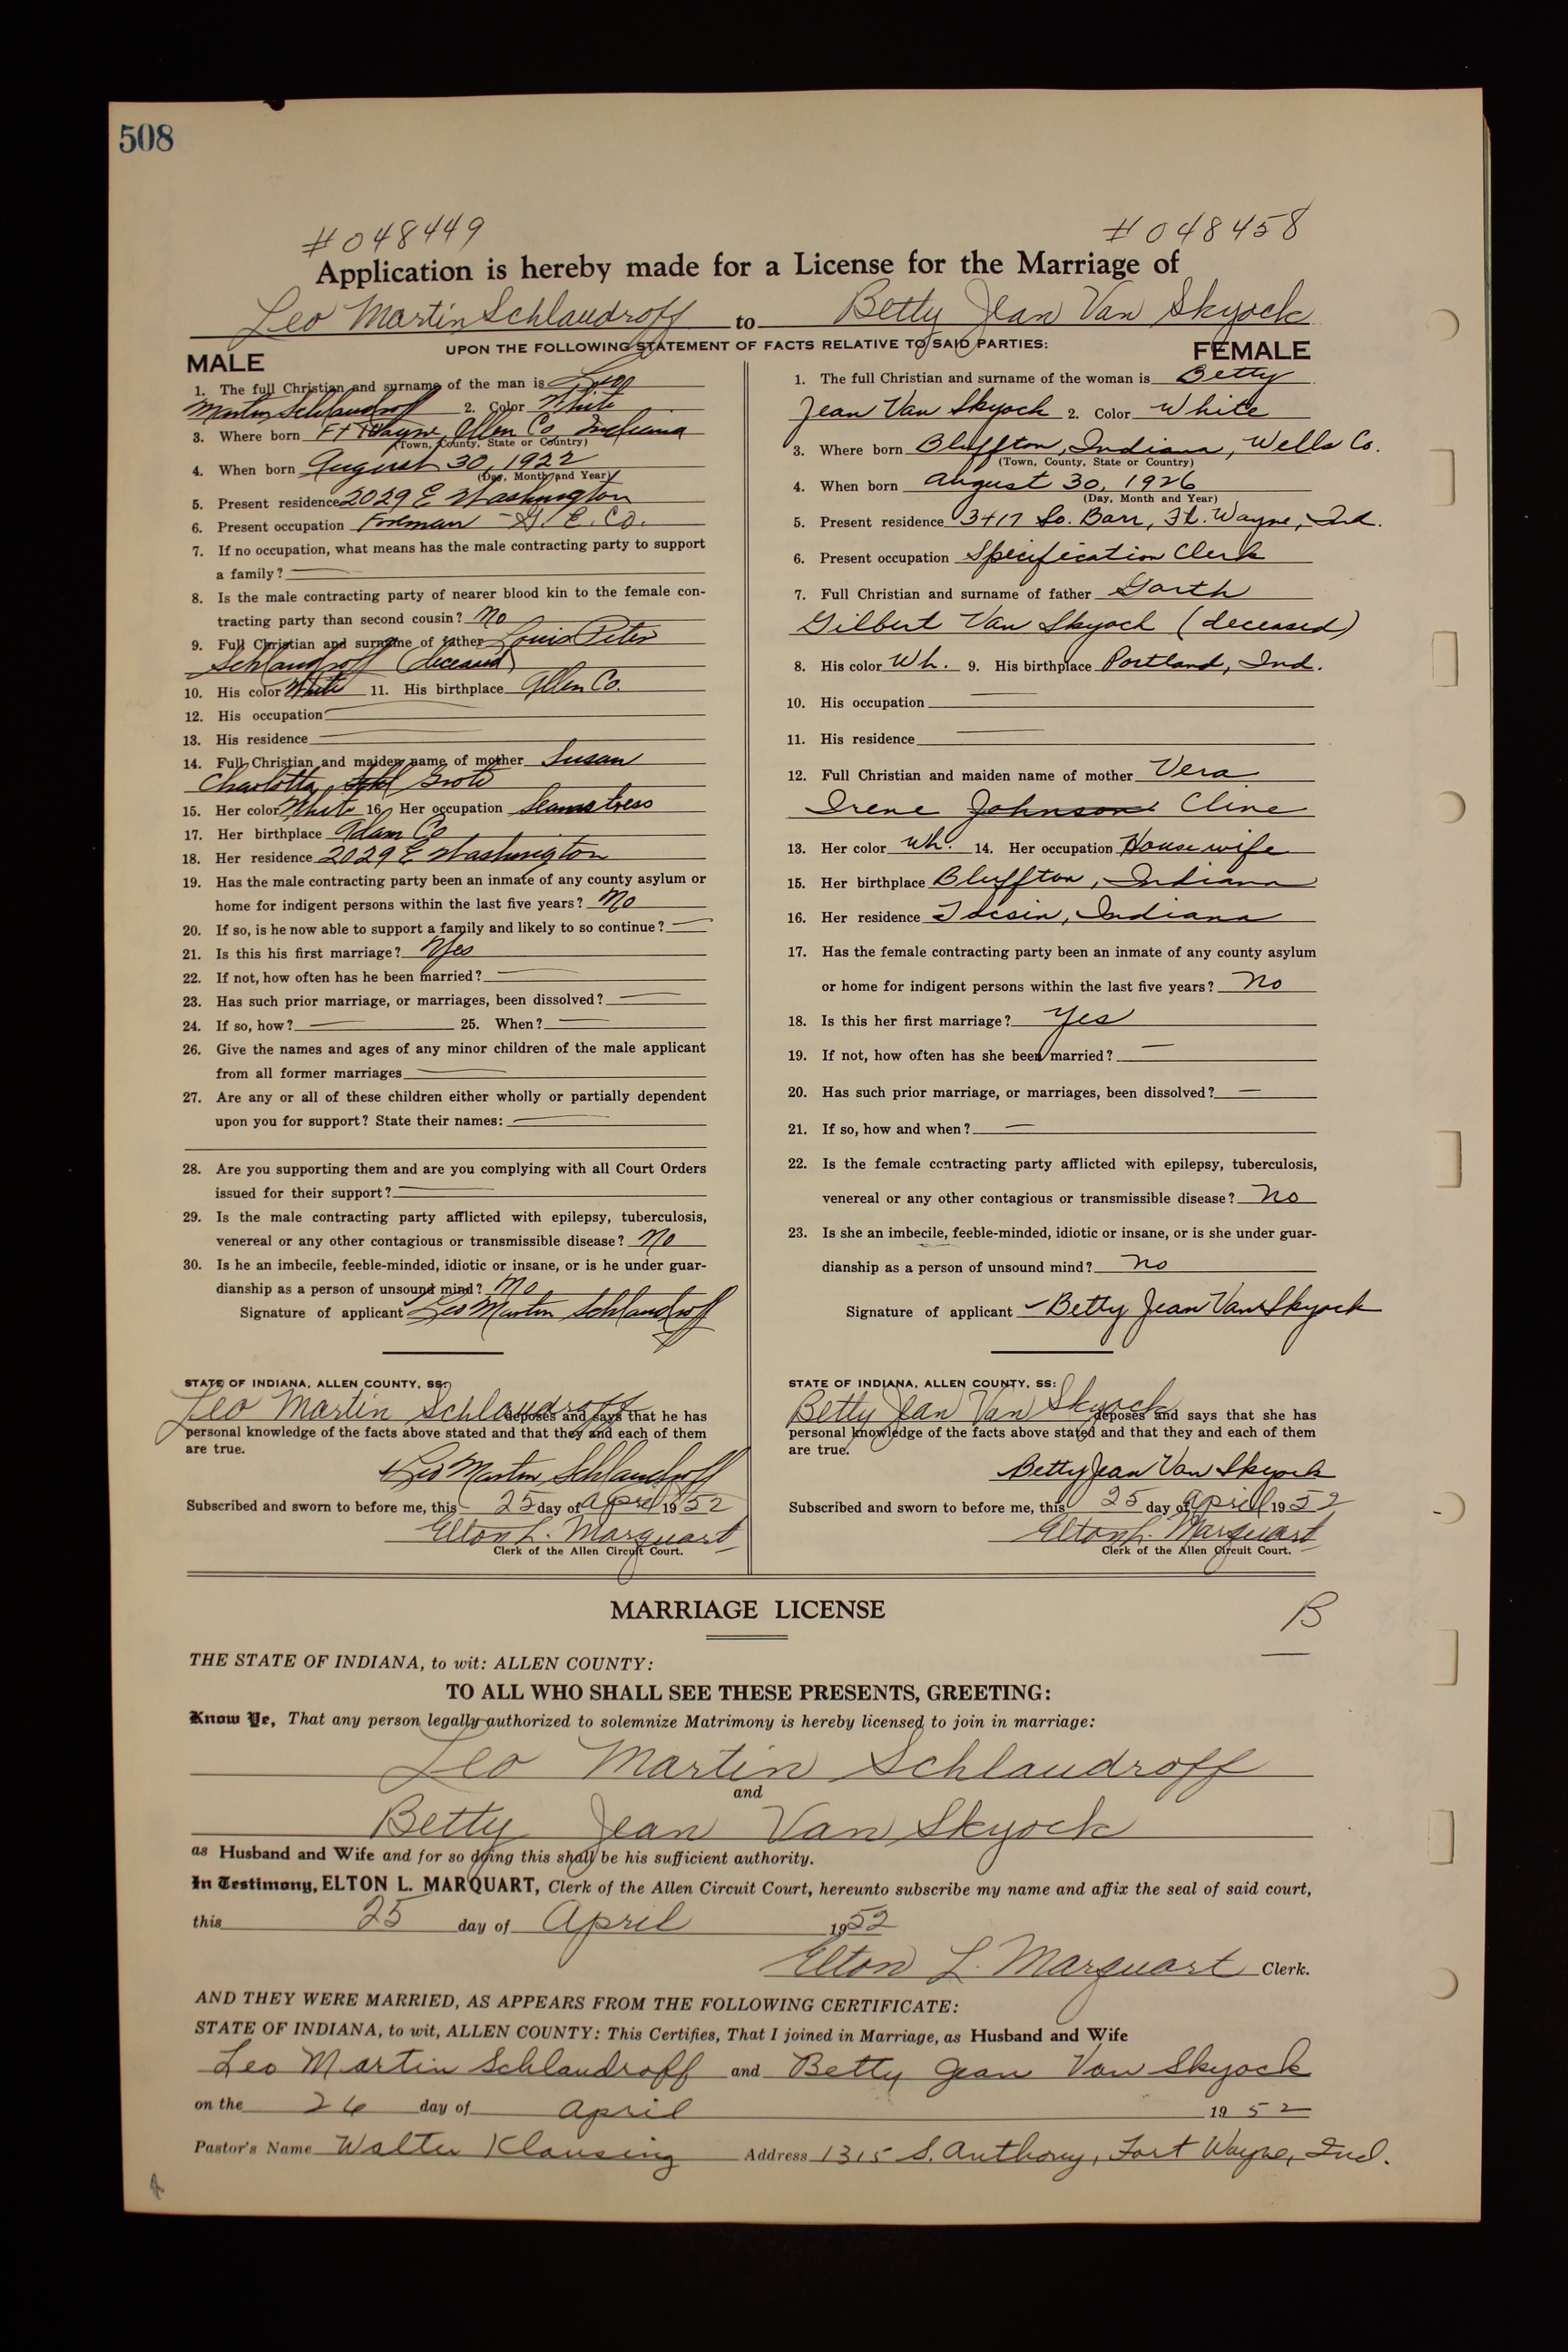 508
#048449 #048458
Application is hereby made for a License for the Marriage of
Leo Martin Schlaudroff to Betty Jean Van Skyock
UPON THE FOLLOWING STATEMENT OF FACTS RELATIVE TO SAID PARTIES:
MALE
1. The full Christian and surname of the man is Leo
Martin Schlaudroff 2. Color White
3. Where born Ft Wayne Allen Co Indiana
(Town, County, State or Country)
4. When born August 30, 1922
(Day, Month and Year)
5. Present residence 2029 E Washington
6. Present occupation Foreman - G. E. Co.
7. If no occupation, what means has the male contracting party to support
a family?
8. Is the male contracting party of nearer blood kin to the female con-
tracting party than second cousin? No
9. Full Christian and surname of father Louis Peter
Schlaudroff (deceased)
10. His color White 11. His birthplace Allen Co.
12. His occupation
13. His residence
14. Full Christian and maiden name of mother Susan
Charlotta Grote
15. Her color White 16. Her occupation Seamstress
17. Her birthplace Adam Co
18. Her residence 2029 E Washington
19. Has the male contracting party been an inmate of any county asylum or
home for indigent persons within the last five years? No
20. If so, is he now able to support a family and likely to so continue?
21. Is this his first marriage? Yes
22. If not, how often has he been married?
23. Has such prior marriage, or marriages, been dissolved?
24. If so, how? 25. When?
26. Give the names and ages of any minor children of the male applicant
from all former marriages
27. Are any or all of these children either wholly or partially dependent
upon you for support? State their names:
28. Are you supporting them and are you complying with all Court Orders
issued for their support?
29. Is the male contracting party afflicted with epilepsy, tuberculosis,
venereal or any other contagious or transmissible disease? No
30. Is he an imbecile, feeble-minded, idiotic or insane, or is he under guar-
dianship as a person of unsound mind? No
Signature of applicant Leo Martin Schlaudroff
STATE OF INDIANA, ALLEN COUNTY, SS:
Leo Martin Schlaudroff deposes and says that he has
personal knowledge of the facts above stated and that they and each of them
are true.
Leo Martin Schlaudroff
Subscribed and sworn to before me, this 25 day of April 1952
Elton L. Marquart
Clerk of the Allen Circuit Court.
FEMALE
1. The full Christian and surname of the woman is Betty
Jean Van Skyock 2. Color White
3. Where born Bluffton, Indiana, Wells Co.
(Town, County, State or Country)
4. When born August 30, 1926
(Day, Month and Year)
5. Present residence 3417 So. Barr, Ft. Wayne, Ind.
6. Present occupation Specification Clerk
7. Full Christian and surname of father Garth
Gilbert Van Skyock (deceased)
8. His color Wh. 9. His birthplace Portland, Ind.
10. His occupation
11. His residence
12. Full Christian and maiden name of mother Vera
Irene Johnson Cline
13. Her color Wh. 14. Her occupation Housewife
15. Her birthplace Bluffton, Indiana
16. Her residence Tocsin, Indiana
17. Has the female contracting party been an inmate of any county asylum
or home for indigent persons within the last five years? No
18. Is this her first marriage? Yes
19. If not, how often has she been married?
20. Has such prior marriage, or marriages, been dissolved?
21. If so, how and when?
22. Is the female contracting party afflicted with epilepsy, tuberculosis,
venereal or any other contagious or transmissible disease? No
23. Is she an imbecile, feeble-minded, idiotic or insane, or is she under guar-
dianship as a person of unsound mind? No
Signature of applicant Betty Jean Van Skyock
STATE OF INDIANA, ALLEN COUNTY, SS:
Betty Jean Van Skyock deposes and says that she has
personal knowledge of the facts above stated and that they and each of them
are true.
Betty Jean Van Skyock
Subscribed and sworn to before me, this 25 day of April 1952
Elton L. Marquart
Clerk of the Allen Circuit Court.
MARRIAGE LICENSE
B
THE STATE OF INDIANA, to wit: ALLEN COUNTY:
TO ALL WHO SHALL SEE THESE PRESENTS, GREETING:
Know Ye, That any person legally authorized to solemnize Matrimony is hereby licensed to join in marriage:
Leo Martin Schlaudroff
and
Betty Jean Van Skyock
as Husband and Wife and for so doing this shall be his sufficient authority.
In Testimony, ELTON L. MARQUART, Clerk of the Allen Circuit Court, hereunto subscribe my name and affix the seal of said court,
this 25 day of April 1952
Elton L. Marquart Clerk.
AND THEY WERE MARRIED, AS APPEARS FROM THE FOLLOWING CERTIFICATE:
STATE OF INDIANA, to wit, ALLEN COUNTY: This Certifies, That I joined in Marriage, as Husband and Wife
Leo Martin Schlaudroff and Betty Jean Van Skyock
on the 26 day of April 1952
Pastor's Name Walter Klausing Address 1315 S. Anthony, Fort Wayne, Ind.